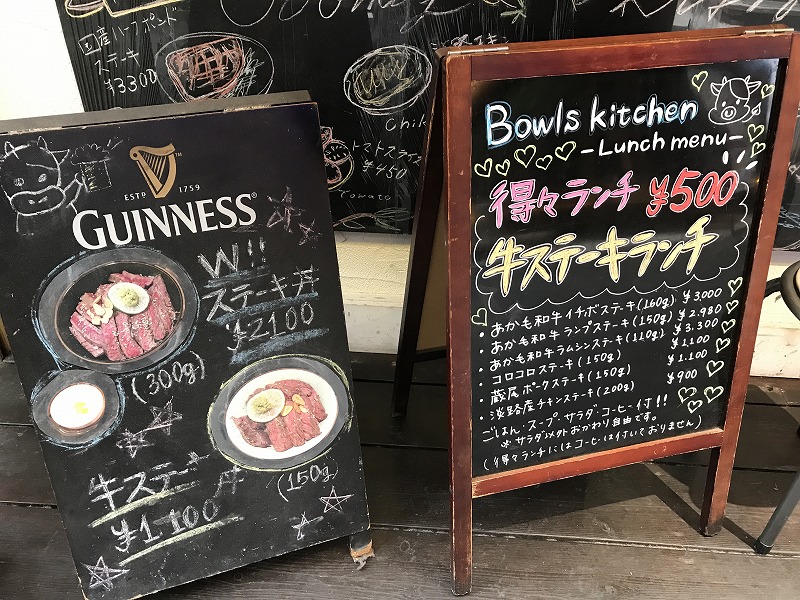 国産ハーフポンド
ステーキ
¥3300
トマトスライス
¥450
Tomato
ESTD 1759
GUINNESS
W!!
ステーキ丼
¥2100
(300g)
(150g)
牛ステーキ丼
¥1100
Bowls kitchen
-Lunch menu-
得々ランチ ¥500
牛ステーキランチ
・あかも和牛イチボステーキ(160g) ¥3,000
・あかも和牛ランプステーキ(150g) ¥2,980
・あかも和牛ラムシンステーキ(110g) ¥3,300
・コロコロステーキ(150g) ¥1,100
・蔵尾ポークステーキ(150g) ¥1,100
・淡路産チキンステーキ(200g) ¥900
ごはん・スープ・サラダ・コーヒー付!!
※サラダ以外おかわり自由です。
(得々ランチにはコーヒーは付いておりません)